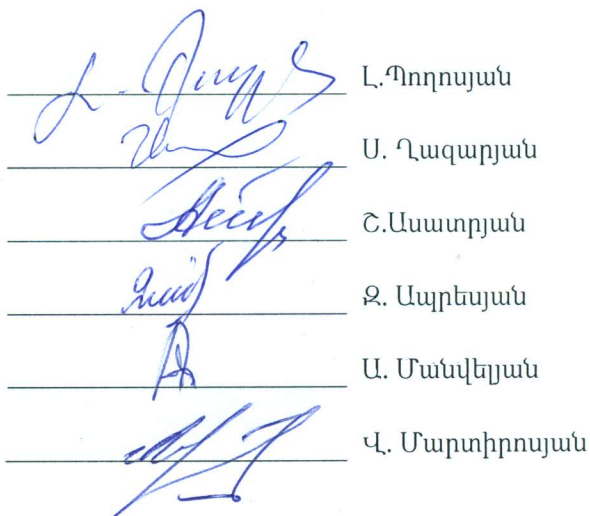 Լ.Պողոսյան
Ս. Ղազարյան
Շ.Ասատրյան
Զ. Ապրեսյան
Ա. Մանվելյան
Վ. Մարտիրոսյան